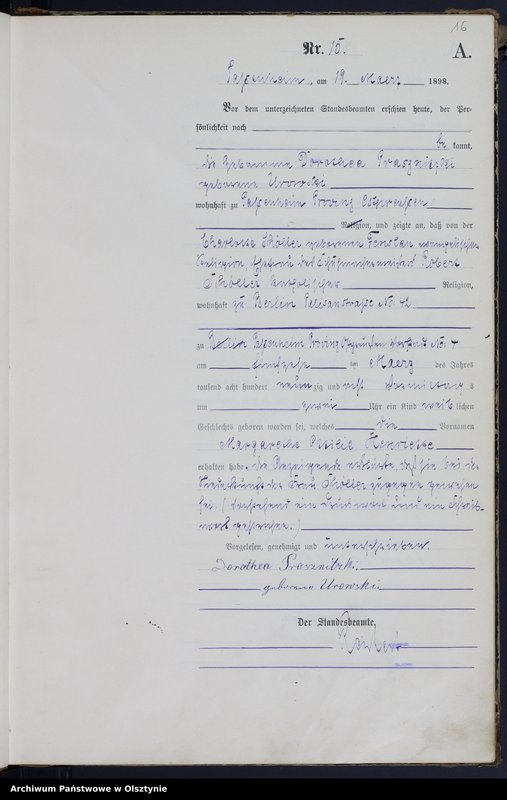 16
Nr. 15.
A.
Passenheim, am 19. Maerz 1898.
Vor dem unterzeichneten Standesbeamten erschien heute, der Per-
sönlichkeit nach
be kannt,
die Hebamme Dorothea
geborene Urowski
wohnhaft zu Passenheim Provinz Ostpreussen
Religion, und zeigte an, daß von der
Charlotte geborenen evangelischer
Religion, Ehefrau des Schuhmachermeisters Robert
katholischer Religion,
wohnhaft zu Berlin No. 42
zu Berlin Passenheim Provinz Ostpreussen No. 4
am fünfzehn ten Maerz des Jahres
tausend acht hundert neun zig und acht Vormittag s
um zwei Uhr ein Kind weib lichen
Geschlechts geboren worden sei, welches die Vornamen
Margarethe Henriette
erhalten habe. Die Anzeigende erklärte, daß sie bei der
Niederkunft der Frau zugegen gewesen
sei. (Vorstehend ein Druckwort und ein Schreib-
wort gestrichen.)
Vorgelesen, genehmigt und unterschrieben.
Dorothea
geborene Urowski
Der Standesbeamte.
Archiwum Państwowe w Olsztynie